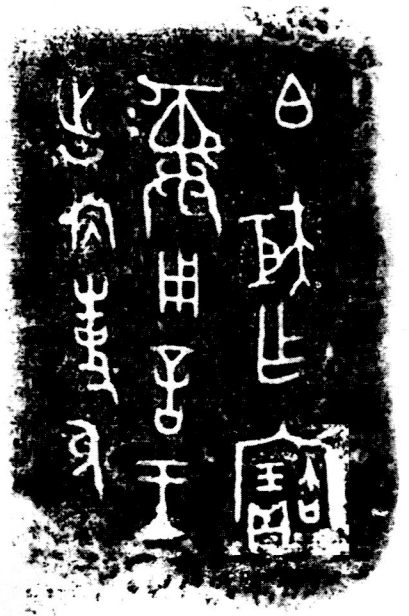 白矩乍寶
彝用言王
出內事人